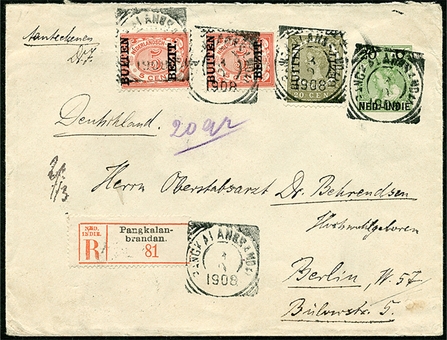 Aanteekenen
BUITEN BEZIT.
BUITEN BEZIT.
BUITEN
20 CEN
NED-INDIE
1908
1908
1908
Deutschland.
20 gr
Herrn Oberstabsarzt Dr. Behrendsen
Hochwohlgeboren
NED. INDIE.
R
Pangkalan-
brandan.
81
1908
Berlin, W. 57
Bülowstr. 5.